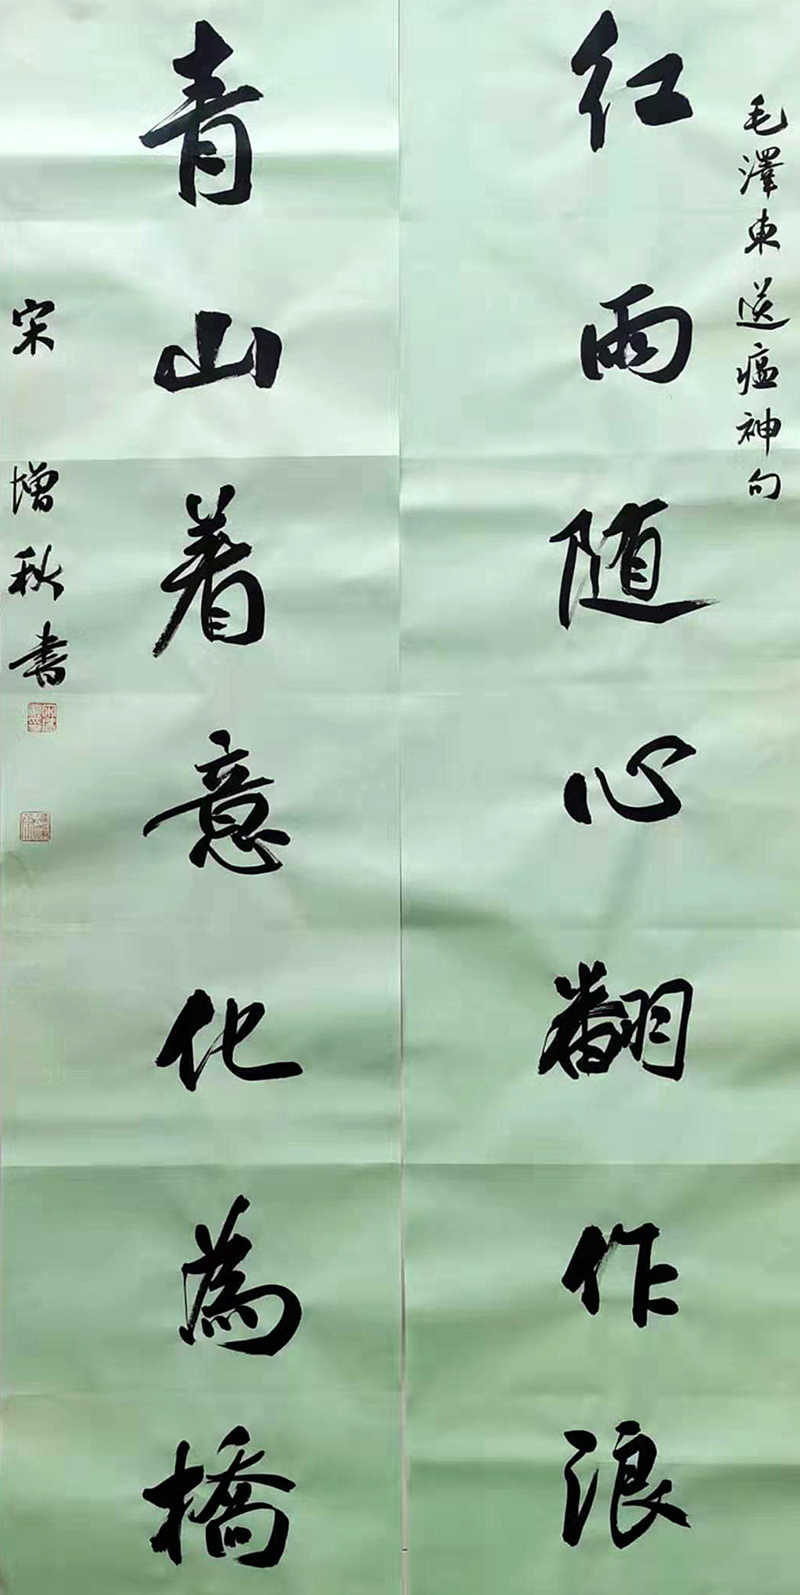 毛澤東送瘟神句
红雨随心翻作浪
青山着意化為橋
宋增秋書